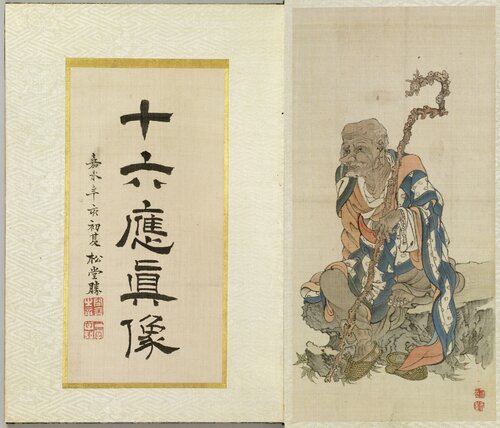 十六應眞像
嘉永辛亥初夏 松堂勝